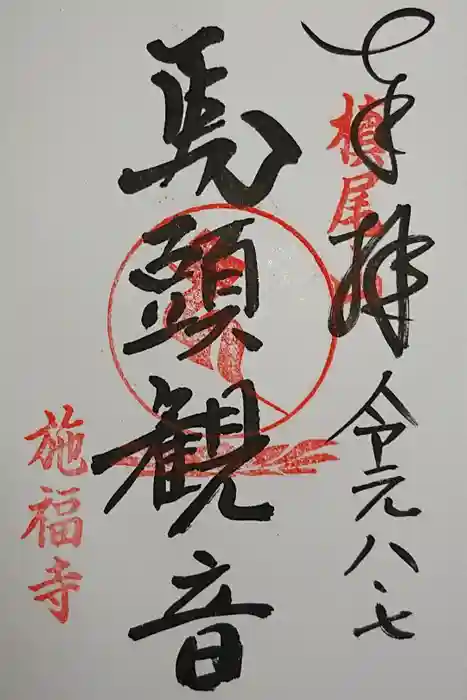 奉拝 令元八・七
槇尾山
馬頭観音
施福寺